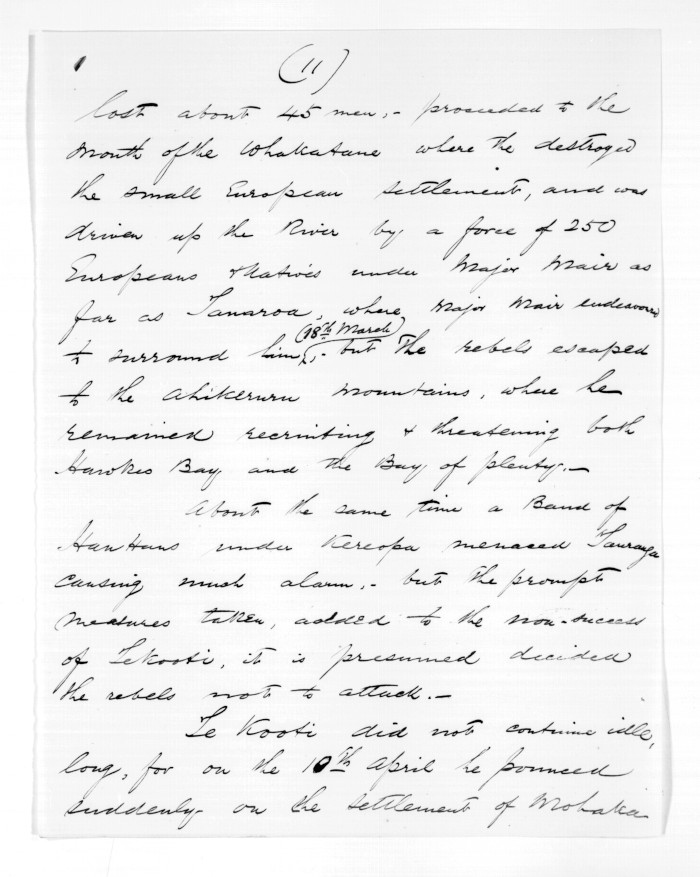 (11)
lost about 45 men,- proceeded to the
mouth of the Whakatane where the destroyed
the small European settlement, and was
driven up the River by a force of 250
Europeans & Natives under Major Mair as
far as Tanaroa, where Major Mair endeavored
(18th March)
to surround him,- but the rebels escaped
to the Ahikeruru Mountains, where he
remained recruiting & threatening both
Hawkes Bay and the Bay of plenty.-
About the same time a Band of
Hau Haus under Kereopa menaced Tauranga
causing much alarm,- but the prompt
measures taken, added to the non-success
of Te Kooti, it is presumed decided
the rebels not to attack.-
Te Kooti did not continue idle,
long, for on the 10th April he pounced
suddenly on the settlement of Mohaka